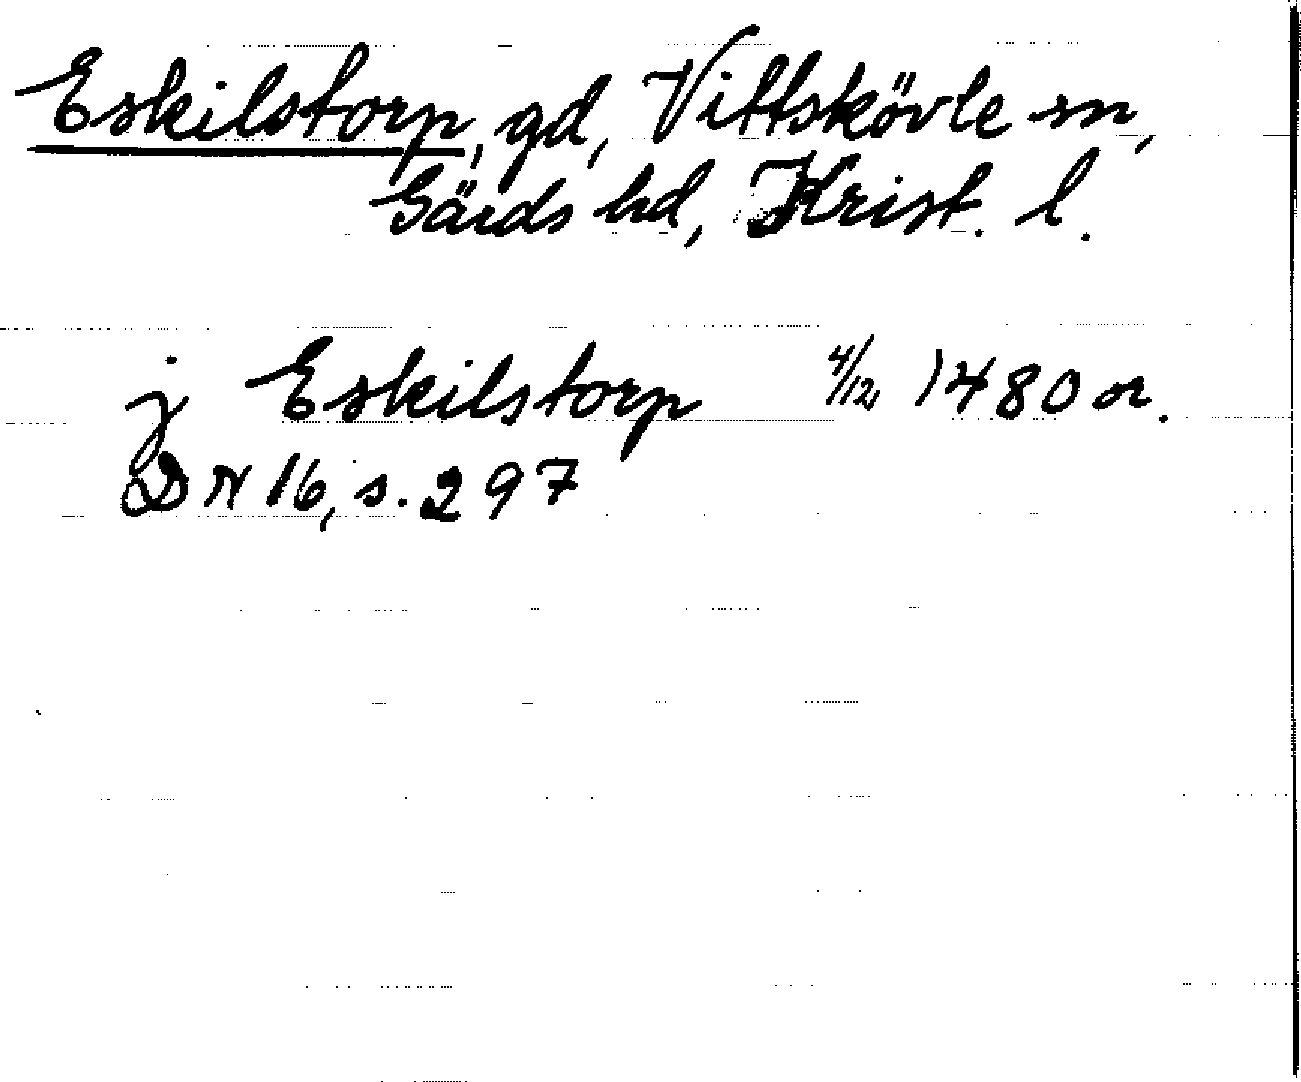 Eskilstorp, gd, Vittskövle sn,
Gärds hd, Krist. l.
j Eskilstorp 4/12 1480 or.
DN 16, s. 297